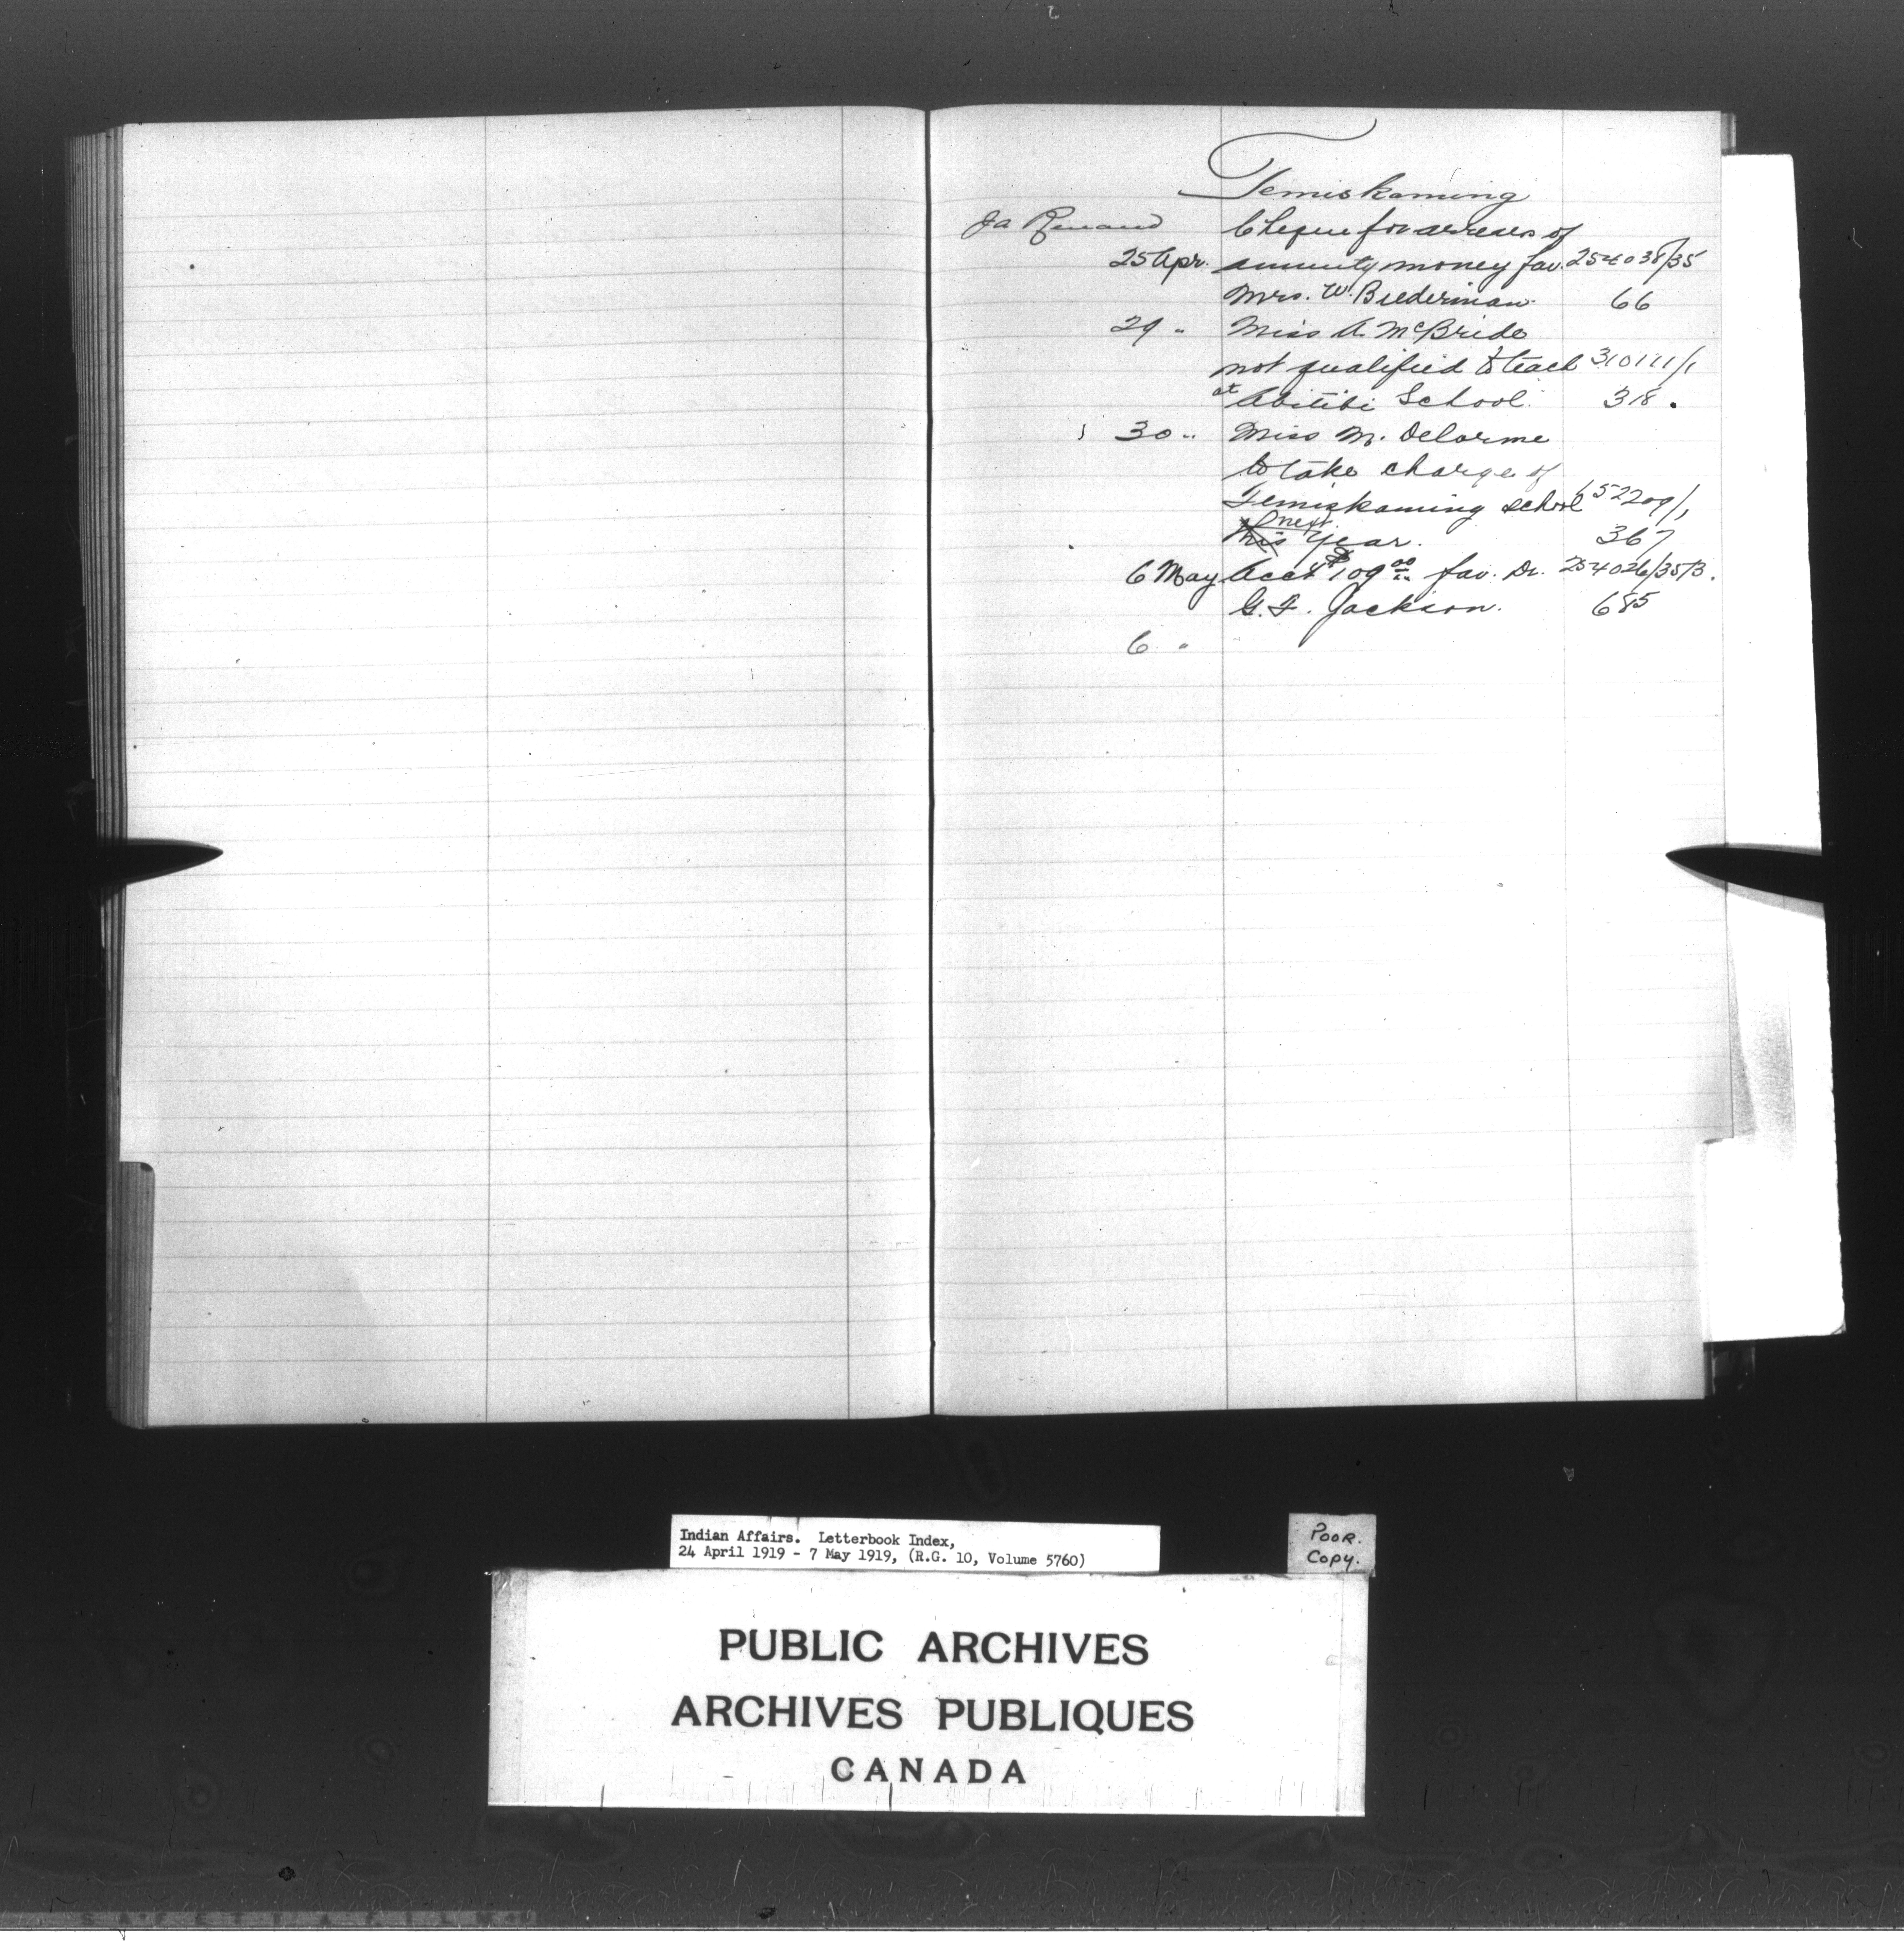 Temiskaming
Ja Renaud Cheque for arrears of
25 Apr. annuity money fav. 254038/35
Mrs. W. Biederman. 66
29 " Miss A. McBride
not qualified to teach 310111/1
at Abitibi School. 318.
30 " Miss M. Delorme
to take charge of
Temiskaming school 652209/1
next
this year. 367
6 May Acct $109.00 fav. Dr. 254026/35B.
G. F. Jackson. 685
6 "
Indian Affairs. Letterbook Index,
24 April 1919 - 7 May 1919, (R.G. 10, Volume 5760)
POOR.
COPY.
PUBLIC ARCHIVES
ARCHIVES PUBLIQUES
CANADA